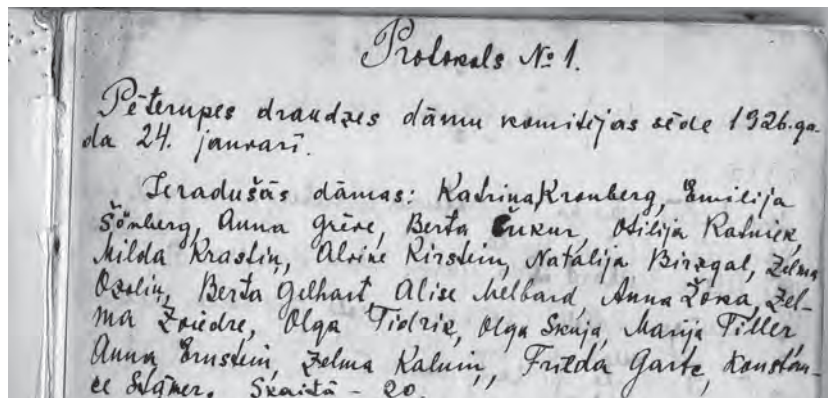 Protokols № 1.
Pēterupes draudzes dāmu komitejas sēde 1926. ga-
da 24. janvarī.
Ieradušās dāmas: Katrina Kronberg, Emilija
Šönberg, Anna Grēve, Berta Čukur, Otilija Ratniek,
Milda Krastiņ, Alvine Kirstein, Natalija Birzgal, Zelma
Ozoliņ, Berta Gelhart, Alise Melbard, Anna Žoka, Zel-
ma Zviedre, Olga Tidrik, Olga Skuja, Marija Tiller,
Anna Ernstein, Zelma Kalniņ, Frīda Garte, Konstan-
ce Skaitā - 20.